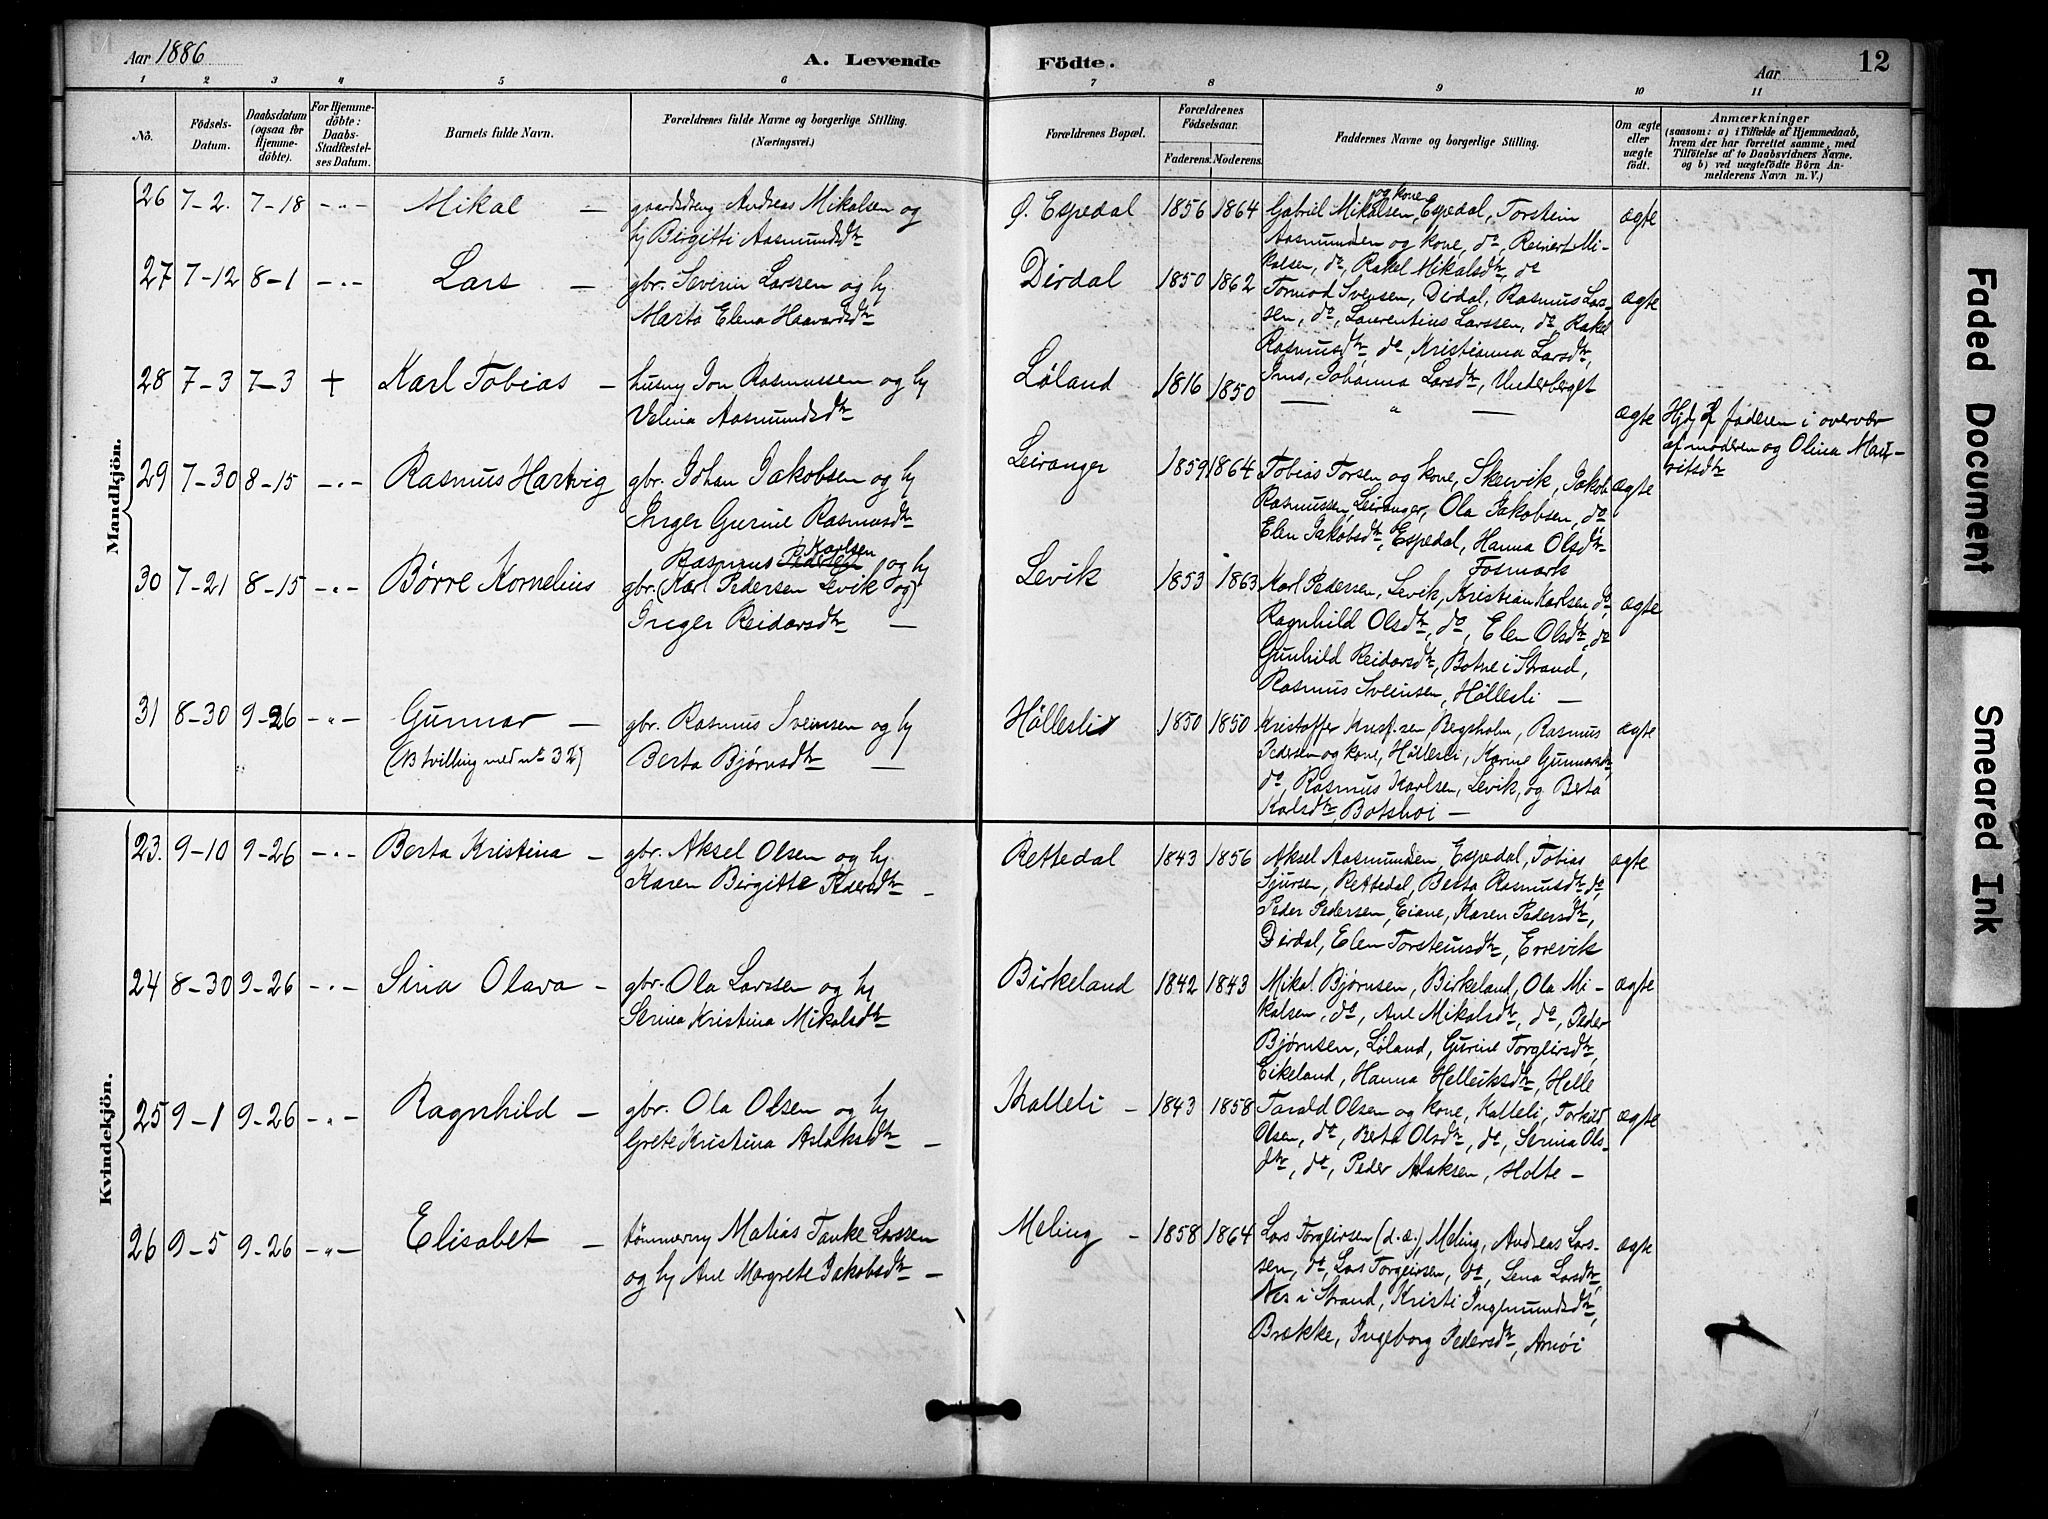 Aar 1886
A. Levende
Födte.
Aar
12
1 2 3 4 5 6 7 8 9 10 11
No.
Födsels-
Datum.
Daabsdatum
(ogsaa for
Hjemme-
döbte).
For Hjemme-
döbte:
Daabs-
Stadfæstel-
ses Datum.
Barnets fulde Navn.
Forældrenes fulde Navne og borgerlige Stilling.
(Næringsvei.)
Forældrenes Bopæl.
Forældrenes
Födselsaar.
Faderens. Moderens.
Faddernes Navne og borgerlige Stilling.
Om ægte
eller
uægte
födt.
Anmærkninger
(saasom: a) i Tilfælde af Hjemmedaab,
hvem der har forrettet samme, med
Tilföielse af to Daabsvidners Navne,
og b) ved uægtefödte Börn An-
melderens Navn m. V.)
Mandkjön.
26 7-2. 7-18 -"- Mikal - gaardsdreng Andreas Mikalsen og
hj Birgitti Aasmundsdtr
Ø. Espedal 1856 1864
og kone
Gabriel Mikalsen, Espedal, Torstein
Aasmundsen og kone, do, Reinert Mi-
kalsen, do, Rakel Mikalsdtr, do
ægte
27 7-12 8-1 -"- Lars - gbr. Severin Larssen og hj
Marta Elena Haavardsdtr
Dirdal 1850 1862
Tormod Svensen, Dirdal, Rasmus Lars-
sen, do, Laurentius Larssen, do, Rakel
Rasmusdtr, do, Kristianna Larsdtr,
Ims, Johanna Larsdtr, Underberget
ægte
28 7-3 7-3 + Karl Tobias - husm Jon Rasmussen og hj
Velina Aasmundsdtr
Løland 1816 1850
— " —
ægte
Hjdj af faderen i overvær
af moderen og Olina Mau-
ritsdtr
29 7-30 8-15 -"- Rasmus Hartvig gbr. Johan Jakobsen og hj
Inger Gurine Rasmusdtr
Leiranger 1859 1864
Tobias Torsen og kone, Skeivik, Jakob
Rasmussen, Leiranger, Ola Jakobsen, do
Elen Jakobsdtr, Espedal, Hanna Olsdtr
Fosmark
ægte
30 7-21 8-15 -"- Børre Kornelius
Karlsen
Rasmus Pedersen og hj
gbr. (Karl Pedersen Levik og)
Inger Reidarsdtr -
Levik 1853 1863
Karl Pedersen, Levik, Kristian Karlsen, do,
Ragnhild Olsdtr, do, Elen Olsdtr, do
Gunhild Reidarsdtr, Botne i Strand,
Rasmus Sveinsen, Hølleslí -
ægte
31 8-30 9-26 -"- Gunnar -
(NB tvilling med no 32)
gbr. Rasmus Sveinsen og hj
Berta Bjørnsdtr -
Høllesli 1850 1850
Kristoffer Krist.sen, Bergsholm, Rasmus
Pedersen og kone, Høllesli, Karine Gunnarsdtr,
do, Rasmus Karlsen, Levik, og Berta
Karlsdtr, Botshei -
ægte
Kvindekjön.
23. 9-10 9-26 -"- Berta Kristina - gbr. Aksel Olsen og hj.
Karen Birgitte Pedersdtr -
Rettedal 1843 1856
Aksel Aasmundsen, Espedal, Tobias
Sjursen, Rettedal, Berta Rasmusdtr, do,
Peder Pedersen, Eiane, Karen Pedersdtr,
Dirdal, Elen Torsteinsdtr, Errevik
ægte
24 8-30 9-26 -"- Sina Olava - gbr. Ola Larssen og hj
Serina Kristina Mikalsdtr
Birkeland 1842 1843
Mikal Bjørnsen, Birkeland, Ola Mi-
kalsen, do, Ane Mikalsdtr, do, Peder
Bjørnsen, Løland, Gurine Torgeirsdtr,
Eikeland, Hanna Helleiksdtr, Helle
ægte
25 9-1 9-26 -"- Ragnhild - gbr. Ola Olsen og hj
Grete Kristina Aslaksdtr -
Kalleli - 1843 1858
Tarald Olsen og kone, Kalleli, Torkild
Olsen, do, Berta Olsdtr, do, Serina Ols-
dtr, do, Peder Aslaksen, Holte -
ægte
26 9-5 9-26 -"- Elisabet - tømmerm Matias Tanke Larssen
og hj Ane Margrete Jakobsdtr -
Meling - 1858 1864
Lars Torgeirsen (d. æ.), Meling, Andreas Lars-
sen, do, Lars Torgeirsen, do, Lena Larsdtr,
Nes i Strand, Kristi Ingemundsdtr,
Brække, Ingeborg Pedersdtr, Arnøi
ægte
Faded Document
Smeared Ink